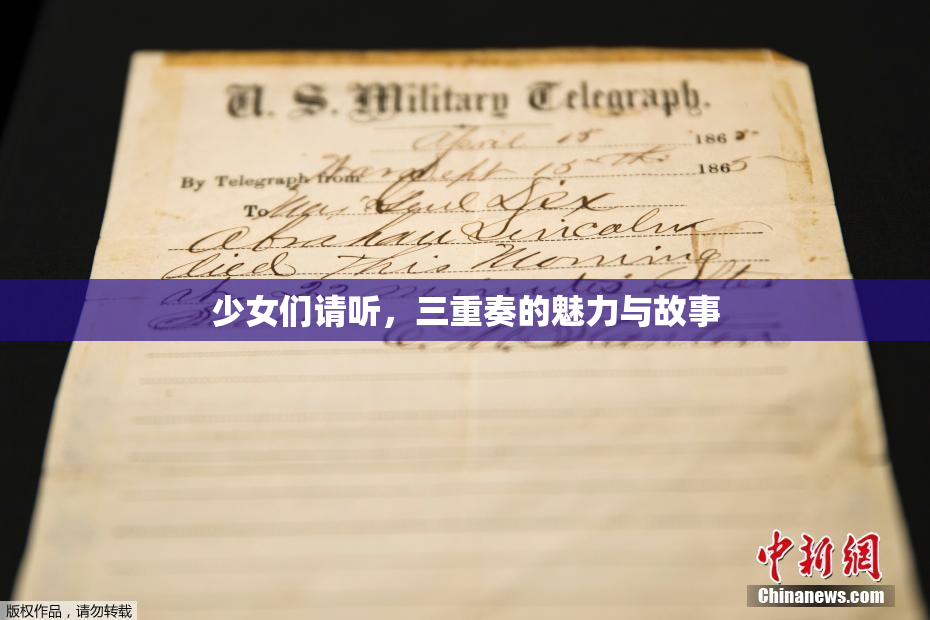 U. S. Military Telegraph.
April 15 1865
By Telegraph from War Dept 15th 1865
To Maj Genl Dix
Abraham Lincoln
died This Morning
at 22 minutes after
少女们请听，三重奏的魅力与故事
E. M. Stanton
中新網
Chinanews.com
版权作品，请勿转载